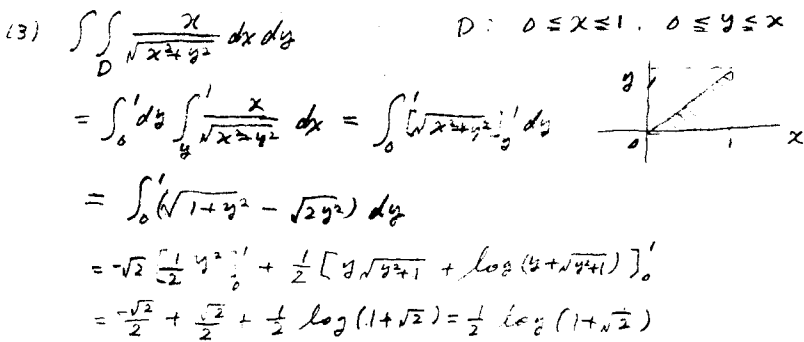 (3) ∫∫_D x/√(x²+y²) dx dy    D: 0 ≤ x ≤ 1, 0 ≤ y ≤ x
= ∫₀¹ dy ∫_y¹ x/√(x²+y²) dx = ∫₀¹ [√(x²+y²)]_y¹ dy
y 1
0 1 x
= ∫₀¹ (√(1+y²) − √(2y²)) dy
= −√2 [1/2 y²]₀¹ + 1/2 [y√(y²+1) + log(y+√(y²+1))]₀¹
= −√2/2 + √2/2 + 1/2 log(1+√2) = 1/2 log(1+√2)